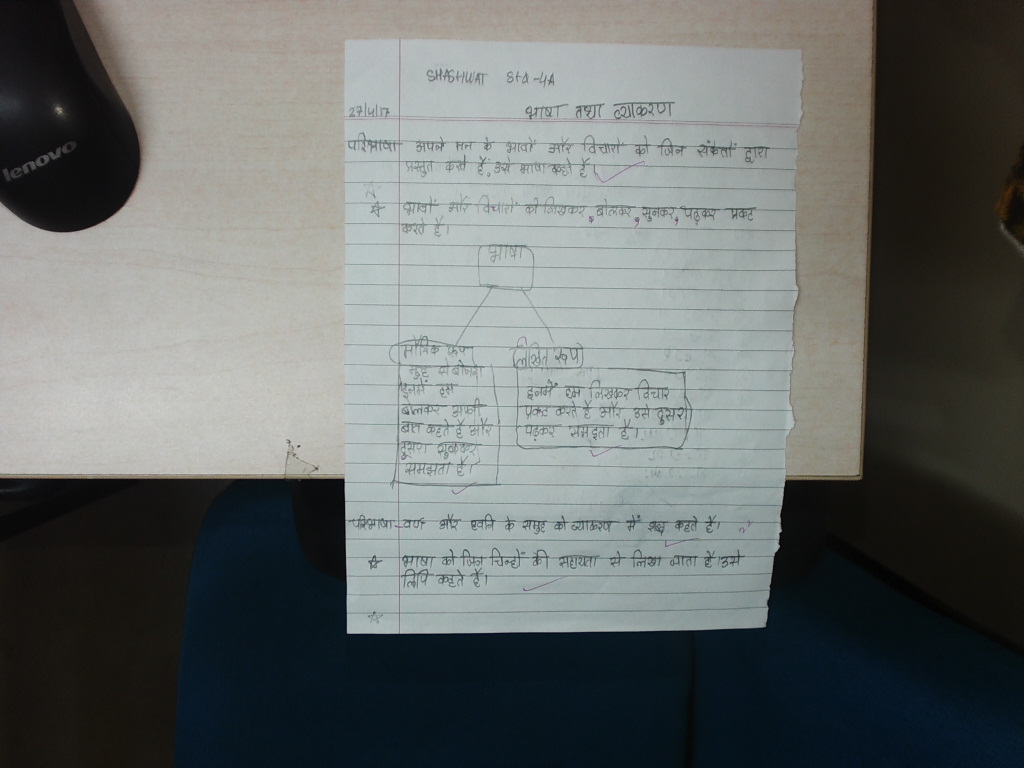 lenovo
SHASHWAT Std-4A
27/4/17 भाषा तथा व्याकरण
परिभाषा अपने मन के भावों और विचारों को जिन संकेतों द्वारा
प्रस्तुत करते हैं, उसे भाषा कहते हैं।
भावों और विचारों को लिखकर, बोलकर, सुनकर, पढ़कर प्रकट
करते हैं।
भाषा
मौखिक रूप
मुँह से बोलना
इनमें हम
बोलकर अपनी
बात कहते हैं और
दूसरा सुनकर
समझता है।
लिखित रूप
इनमें हम लिखकर विचार
प्रकट करते हैं और उसे दूसरा
पढ़कर समझता है।
परिभाषा - वर्ण और ध्वनि के समूह को व्याकरण में शब्द कहते हैं।
भाषा को जिन चिन्हों की सहायता से लिखा जाता है। उसे
लिपि कहते हैं।